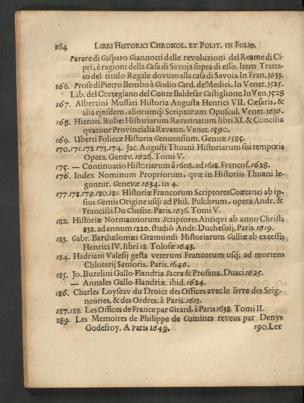 164 LIBRI HISTORICI CHRONOL. ET POLIT. IN FOLIO.
Parere di Gasparo Giannotti delle revoluzioni del Reame di Ci-
pri, è ragioni della Casa di Savoja sopra di esso. Item Tratta-
to del titulo Regale dovuto alla casa di Savoia. In Fran. 1633.
166. Prose di Pietro Bembo à Giulio Card. de Medici. In Venet. 1525.
Lib. del Cortegiano del Conte Baldesar Castiglione. In Ven. 1528
167. Albertini Mussati Historia Augusta Henrici VII. Cæsaris, &
alia ejusdem. aliorumq; Scriptorum Opuscul. Venet. 1636.
168. Hieron. Rubæi Historiarum Ravennatum libri XI. & Concilia
quatuor Provincialia Ravenn. Venet. 1590.
169. Uberti Folietæ Historia Genuensium. Genuæ 1585.
170. 171. 172. 173. 174. Jac. Augusti Thuani Historiarum sui temporis
Opera. Genev. 1626. Tomi V.
175. — Continuatio Historiarum à 1608. ad 1618. Francof. 1628.
176. Index Nominum Propriorum, quæ in Historiis Thuani le-
guntur. Genevæ 1634. in 4.
177. 178. 179. 80. 181. Historiæ Francorum Scriptores Coætanei ab ip-
sius Gentis Origine usq; ad Phil. Pulchrum, opera Andr. &
Francisci Du Chesne. Paris. 1636. Tomi V.
182. Historiæ Normannorum Scriptores Antiqui ab anno Christi
838. ad annum 1220. studiô Andr. Duchesnij. Paris. 1619.
183. Gabr. Bartholomæi Gramondi Historiarum Galliæ ab excessu
Henrici IV. libri 18. Tolosæ 1643.
184. Hadriani Valesij gesta veterum Francorum usq; ad mortem
Chlotarij Senioris. Paris. 1646.
185. Jo. Buzelini Gallo-Flandria Sacra & Profana. Duaci 1625.
— Annales Gallo-Flandriæ. ibid. 1624.
186. Charles Loyseau du Droict des Offices avec le livre des Seig-
neuries, & des Ordres. à Paris. 1613.
187. 188. Les Offices de France par Girard. à Paris 1638. Tomi II.
189. Les Memoires de Philippe de Comines reveus par Denys
Godefroy. A Paris 1649.
190. Let